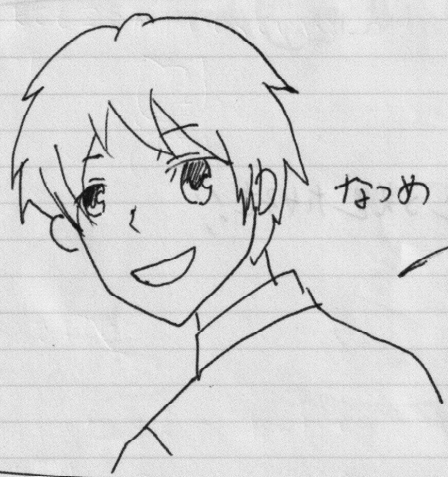 なつめ